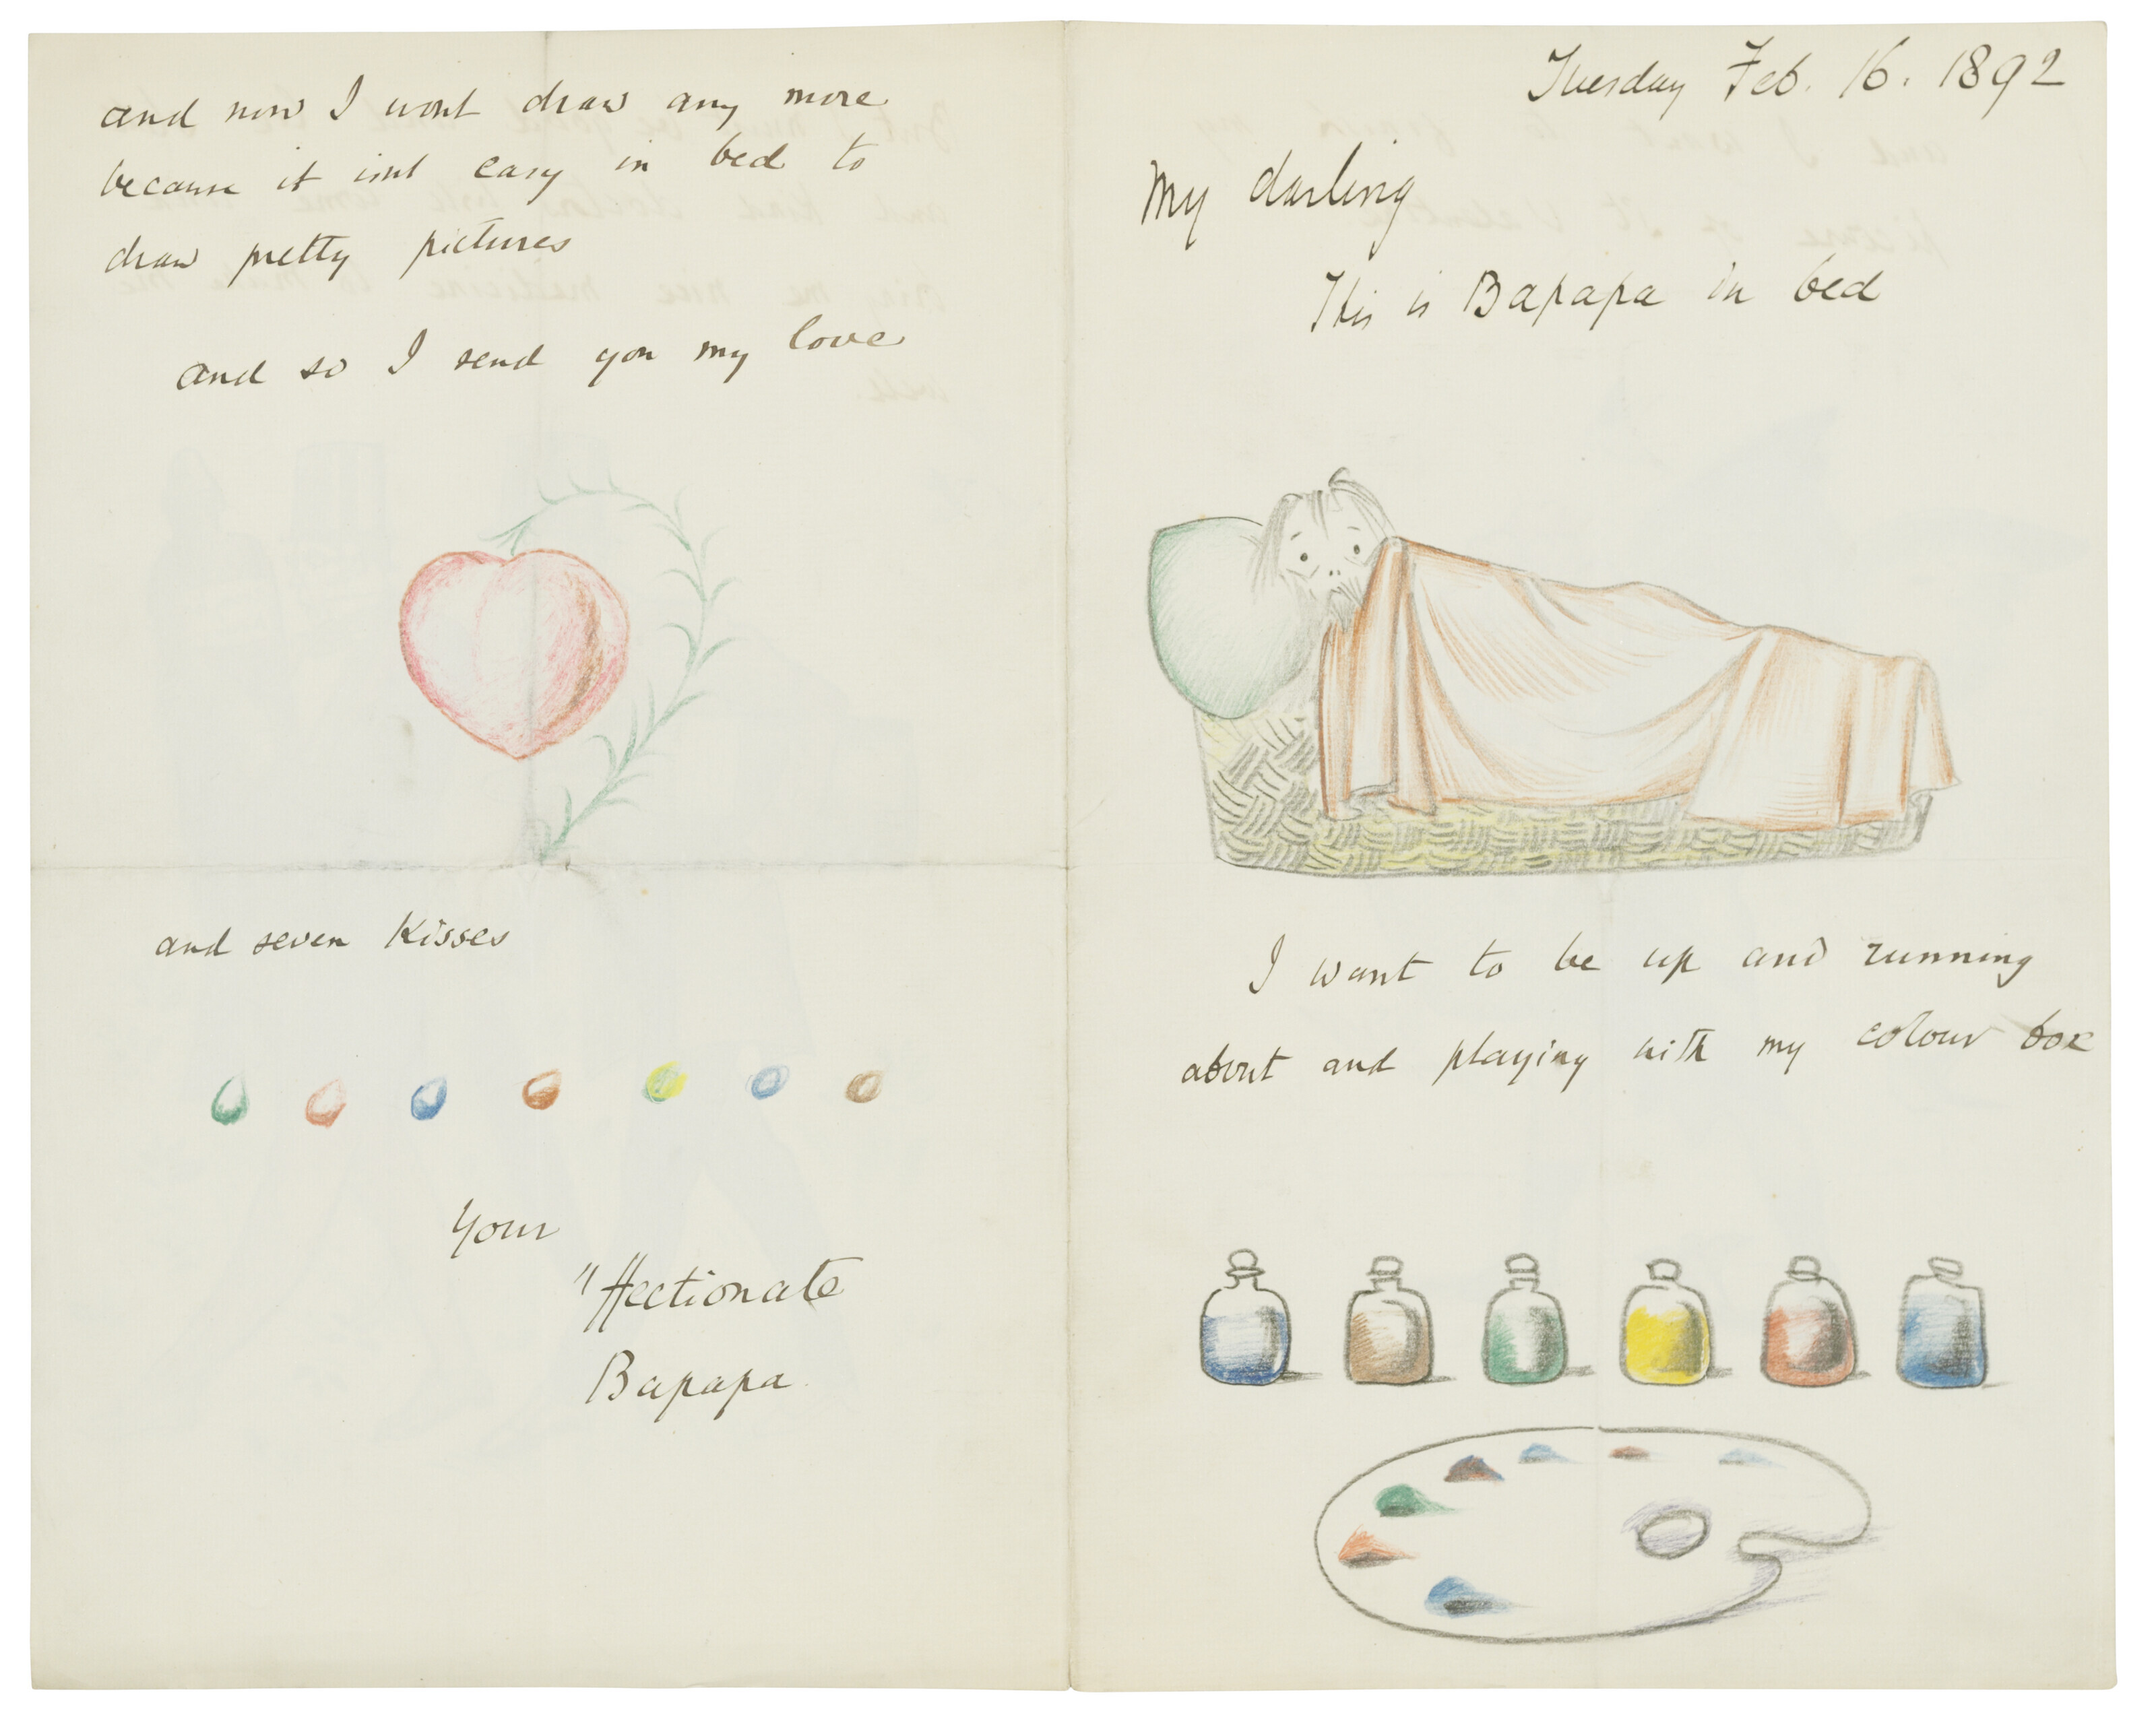 Tuesday Feb. 16. 1892
My darling
This is Bapapa in bed
I want to be up and running
about and playing with my colour box
and now I wont draw any more
because it isnt easy in bed to
draw pretty pictures
and so I send you my love
and seven Kisses
Your
"ffectionate
Bapapa